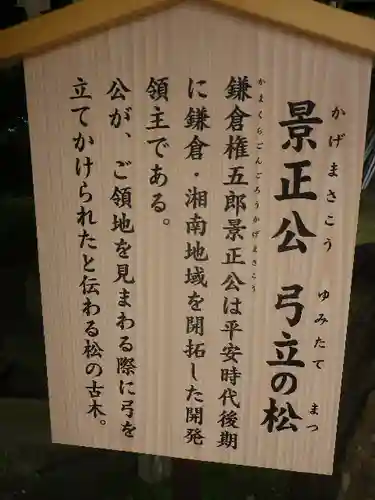 景正公 弓立の松
かげまさこう ゆみたて まつ
鎌倉権五郎景正公は平安時代後期
かまくらごんごろうかげまさこう
に鎌倉・湘南地域を開拓した開発
領主である。
公が、ご領地を見まわる際に弓を
立てかけられたと伝わる松の古木。